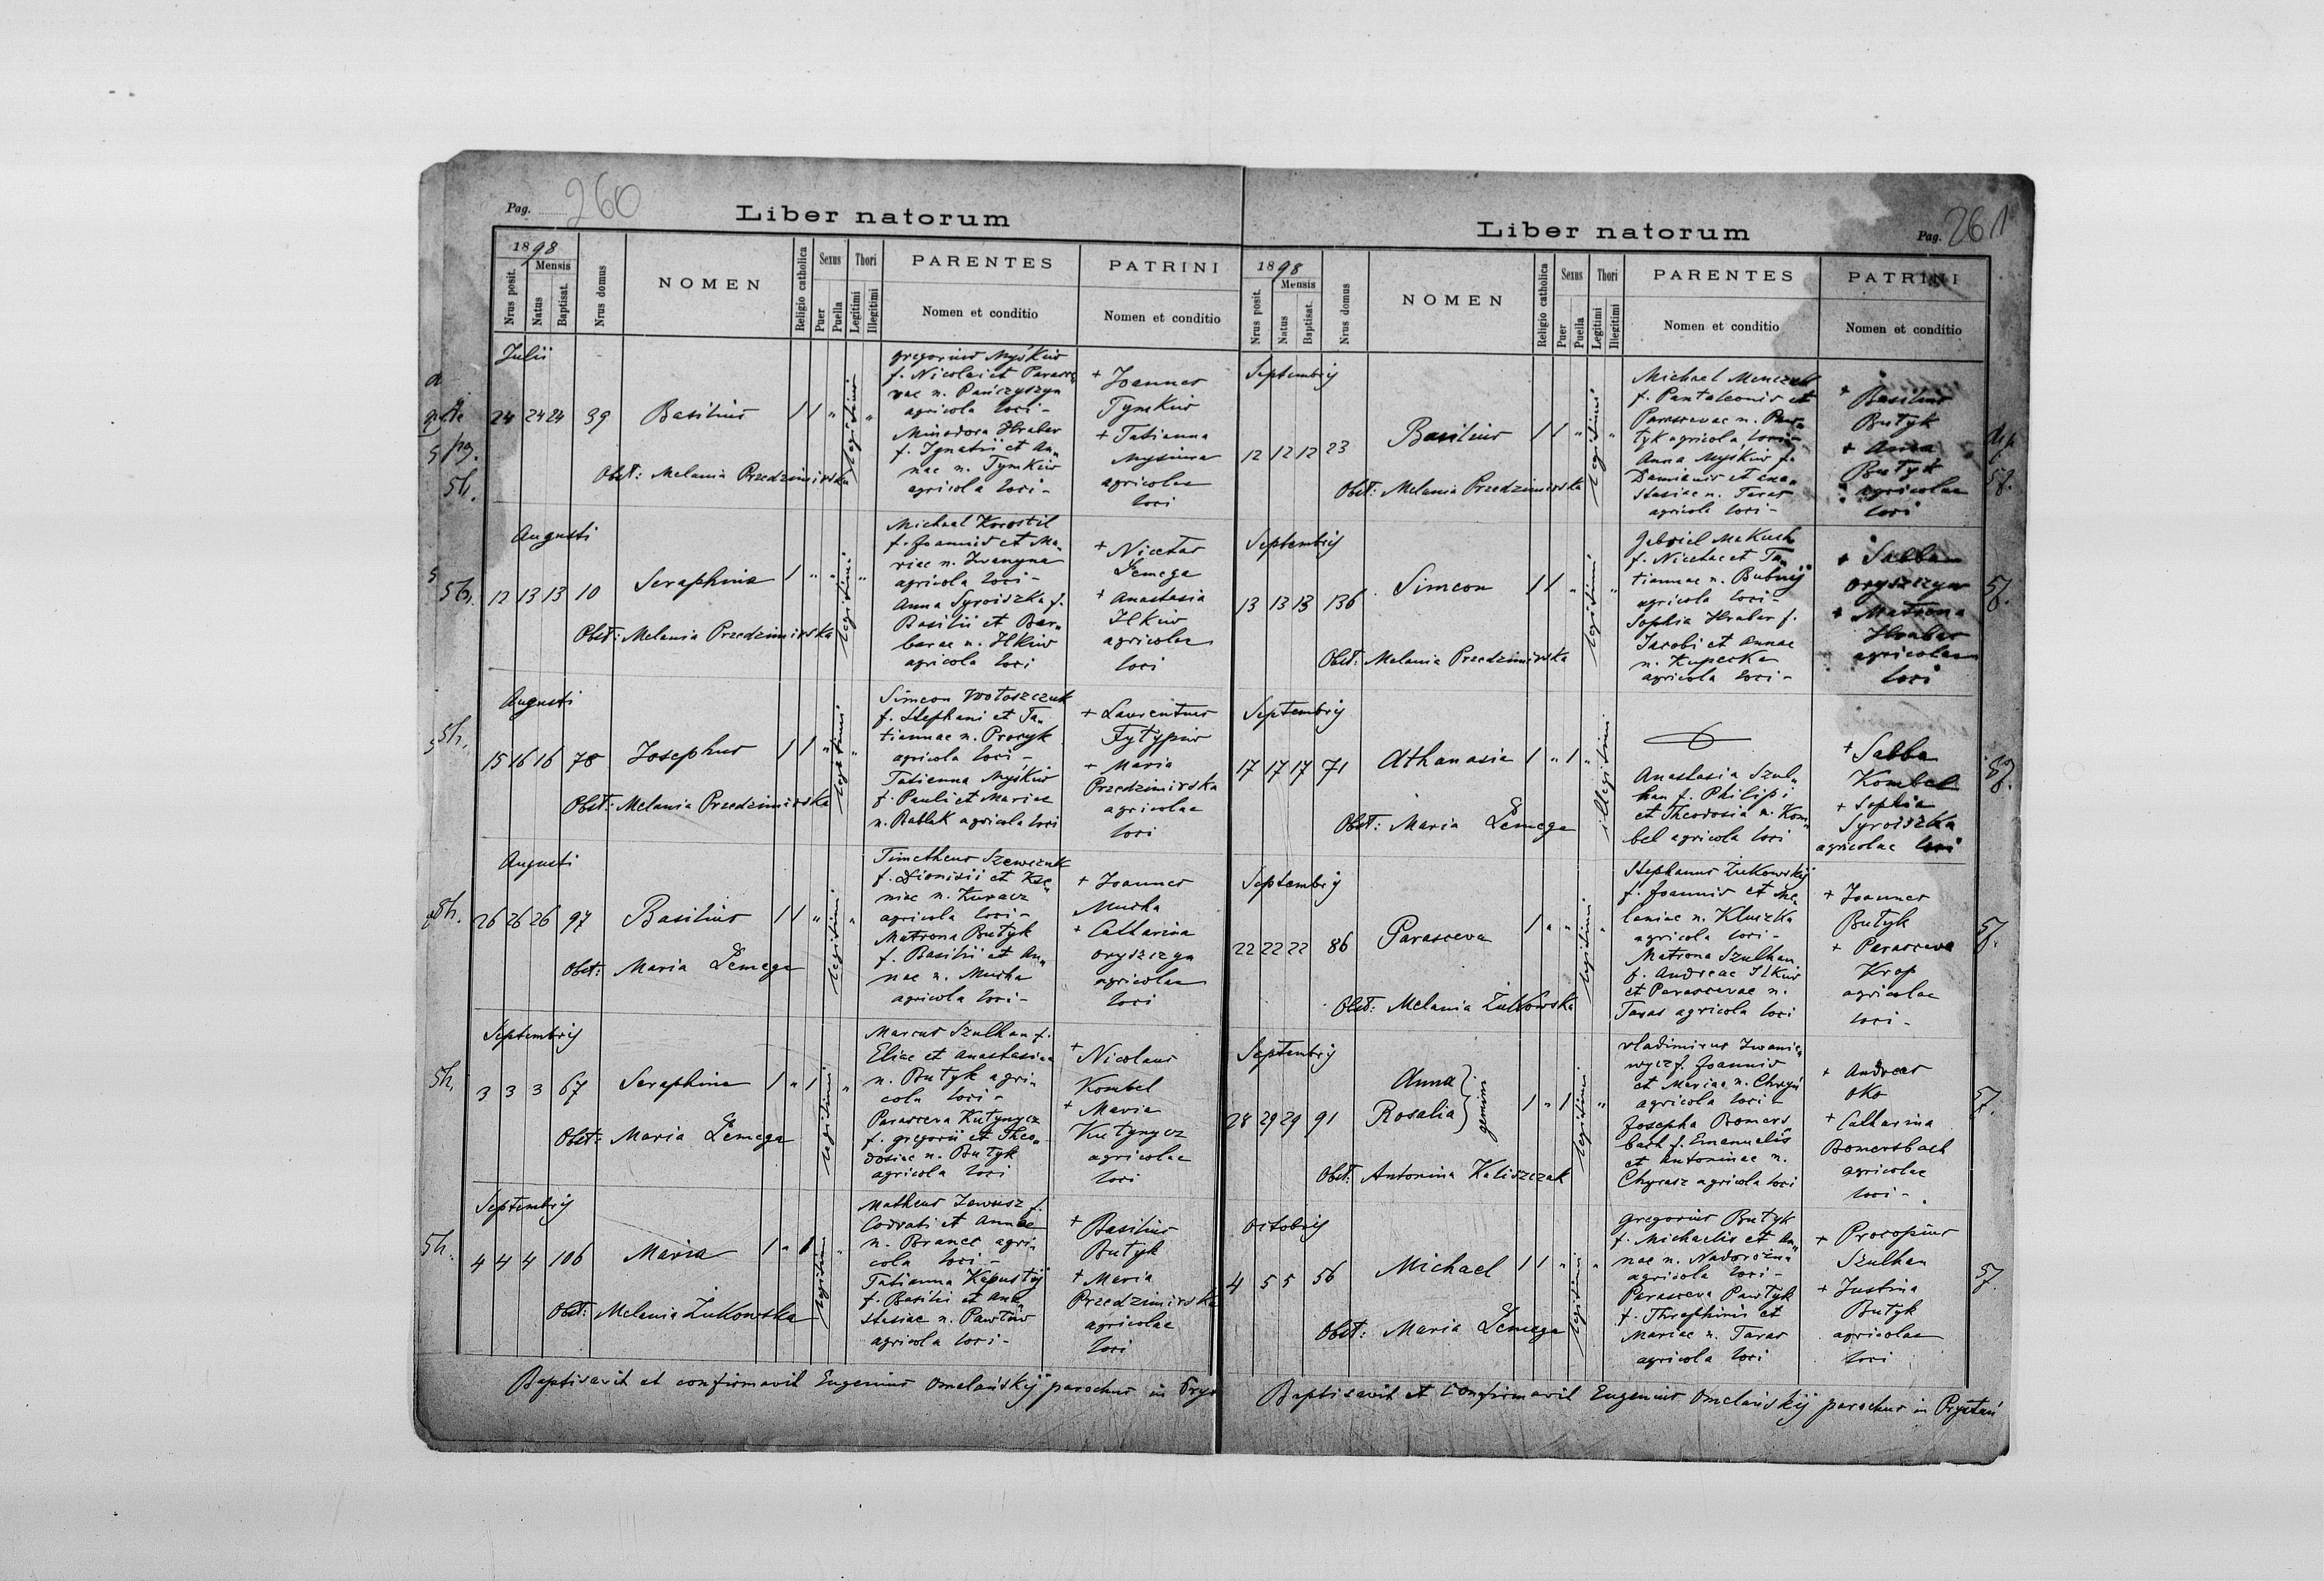 Pag. 260
Liber natorum
1898
Mensis
Nrus posit.
Natus
Baptisat.
Nrus domus
NOMEN
Religio catholica
Sexus
Puer
Puella
Thori
Legitimi
Illegitimi
PARENTES
Nomen et conditio
PATRINI
Nomen et conditio
Julii
24 24 24 39 Basilius 1 1 " legitimi "
Obst: Melania Przedzimirska
Gregorius Myśkiw
f. Nicolai et Parasce„
vae n. Pańczyszyn
agricola loci -
Minodora Hraber
f. Ignatii et An„
nae n. Tymkiw
agricola loci -
+ Joannes
Tymkiw
+ Tatianna
agricolae
loci
5h.
Augusti
12 13 13 10 Seraphina 1 " " legitimi "
Obst: Melania Przedzimirska
Michael Korostil
f. Joannis et Ma„
riae n. Iwanyna
agricola loci -
Anna Syroiszka f.
Basilii et Bar„
barae n. Ilkiw
agricola loci
+ Nicetas
Łemega
+ Anastasia
Ilkiw
agricolae
loci
5h.
Augusti
15 16 16 78 Josephus 1 1 " legitimi "
Obst: Melania Przedzimirska
Simeon Wołoszczuk
f. Stephani et Ta„
tiannae n. Procyk
agricola loci -
Tatianna Myśkiw
f. Pauli et Mariae
n. Bablak agricola loci
+ Laurentius
Fyłypiw
+ Maria
Przedzimirska
agricolae
loci
5h.
Augusti
26 26 26 97 Basilius 1 1 " legitimi "
Obst: Maria Łemega
Timotheus Szewczuk
f. Dionisii et Kse„
niae n. Kuracz
agricola loci -
Matrona Butyk
f. Basilii et An„
nae n. Murha
agricola loci -
+ Joannes
Murha
+ Catharina
Oryszczyn
agricolae
loci
5h.
Septembrij
3 3 3 67 Seraphina 1 " 1 legitimi "
Obst: Maria Łemega
Marcus Szulhan f.
Eliae et Anastasiae
n. Butyk agri„
cola loci -
Parasceva Kutynycz
f. Gregorii et Theo„
dosiae n. Butyk
agricola loci
+ Nicolaus
Kombel
+ Maria
Kutynycz
agricolae
loci
5h.
Septembrij
4 4 4 106 Maria 1 " 1 legitimi "
Obst: Melania Żukowska
Matheus Jawusz f.
Codrati et Annae
n. Brances agri„
cola loci -
Tatianna Kapustij
f. Basilii et Ana„
stasiae n. Pawłiw
agricola loci -
+ Basilius
Butyk
+ Maria
Przedzimirska
agricolae
loci
5h.
Baptisavit et confirmavit Eugenius Omelańskij parochus in Prys
Liber natorum
Pag. 261
1898
Mensis
Nrus posit.
Natus
Baptisat.
Nrus domus
NOMEN
Religio catholica
Sexus
Puer
Puella
Thori
Legitimi
Illegitimi
PARENTES
Nomen et conditio
PATRINI
Nomen et conditio
Septembrij
12 12 12 23 Basilius 1 1 " legitimi "
Obst: Melania Przedzimirska
Michael Menczuk
f. Pantaleonis et
Parascevae n. Paw„
tyk agricola loci -
Anna Myśkiw f.
Damianis et Ana„
stasiae n. Taras
agricola loci -
+ Basilius
Butyk
+ Anna
Butyk
agricolae
loci
Septembrij
13 13 13 136 Simeon 1 1 " legitimi "
Obst: Melania Przedzimirska
Gabriel Makuch
f. Nicetae et Ta„
tiannae n. Bubnij
agricola loci -
Sophia Hraber f.
Jacobi et Annae
n. Kupecka
agricola loci -
+ Sabba
Oryszczyn
+ Matrona
Hraber
agricolae
loci
Septembrij
17 17 17 71 Athanasia 1 " 1 " illegitimi
Obst: Maria Łemega
Anastasia Szul„
han f. Philipi
et Theodosia n. Kom„
bel agricola loci
+ Sabba
Kombel
+ Sophia
Syroiszka
agricolae loci
Septembrij
22 22 22 86 Parasceva 1 " " legitimi "
Obst: Melania Żukowska
Stephanus Żukowskij
f. Joannis et Me„
laniae n. Kluszka
agricola loci -
Matrona Szulhan
f. Andreae Ilkiw
et Parascevae n.
Taras agricola loci
+ Joannes
Butyk
+ Parasceva
Krop
agricolae
loci -
Septembrij
28 29 29 91 Anna
Rosalia } gemini 1 " 1 legitimi "
Obst: Antonina Kaliszczak
Vladimirus Iwanie„
wycz f. Joannis
et Mariae n. Chryń
agricola loci -
Josepha Bomers„
bach f. Emanuelis
et Antoninae n.
Chyrasz agricola loci
+ Andreas
Oko
+ Catharina
Bomersbach
agricolae
loci -
Octobrij
4 5 5 56 Michael 1 1 " legitimi "
Obst: Maria Łemega
Gregorius Butyk
f. Michaelis et An„
nae n. Nadorożna
agricola loci -
Parasceva Pawtyk
f. Thraphinis et
Mariae n. Taras
agricola loci
+ Procopius
Szulhan
+ Justina
Butyk
agricolae
loci
Baptisavit et confirmavit Eugenius Omelańskij parochus in Prystań